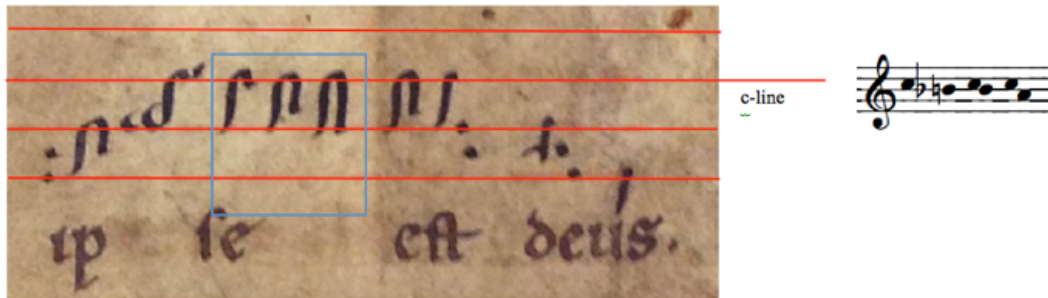 c-line
ip ſe eſt deus.